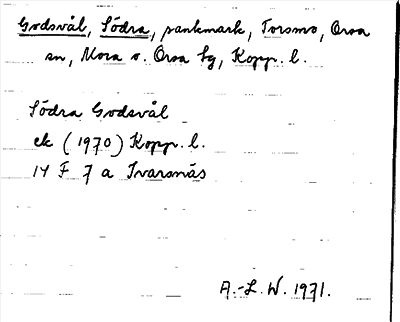 Godsvål, Södra, sankmark, Torsmo, Orsa
sn, Mora o. Orsa tg, Kopp. l.
Södra Godsvål
ek (1970) Kopp. l.
14 F 7 a Ivarsnäs
A.-L. W. 1971.